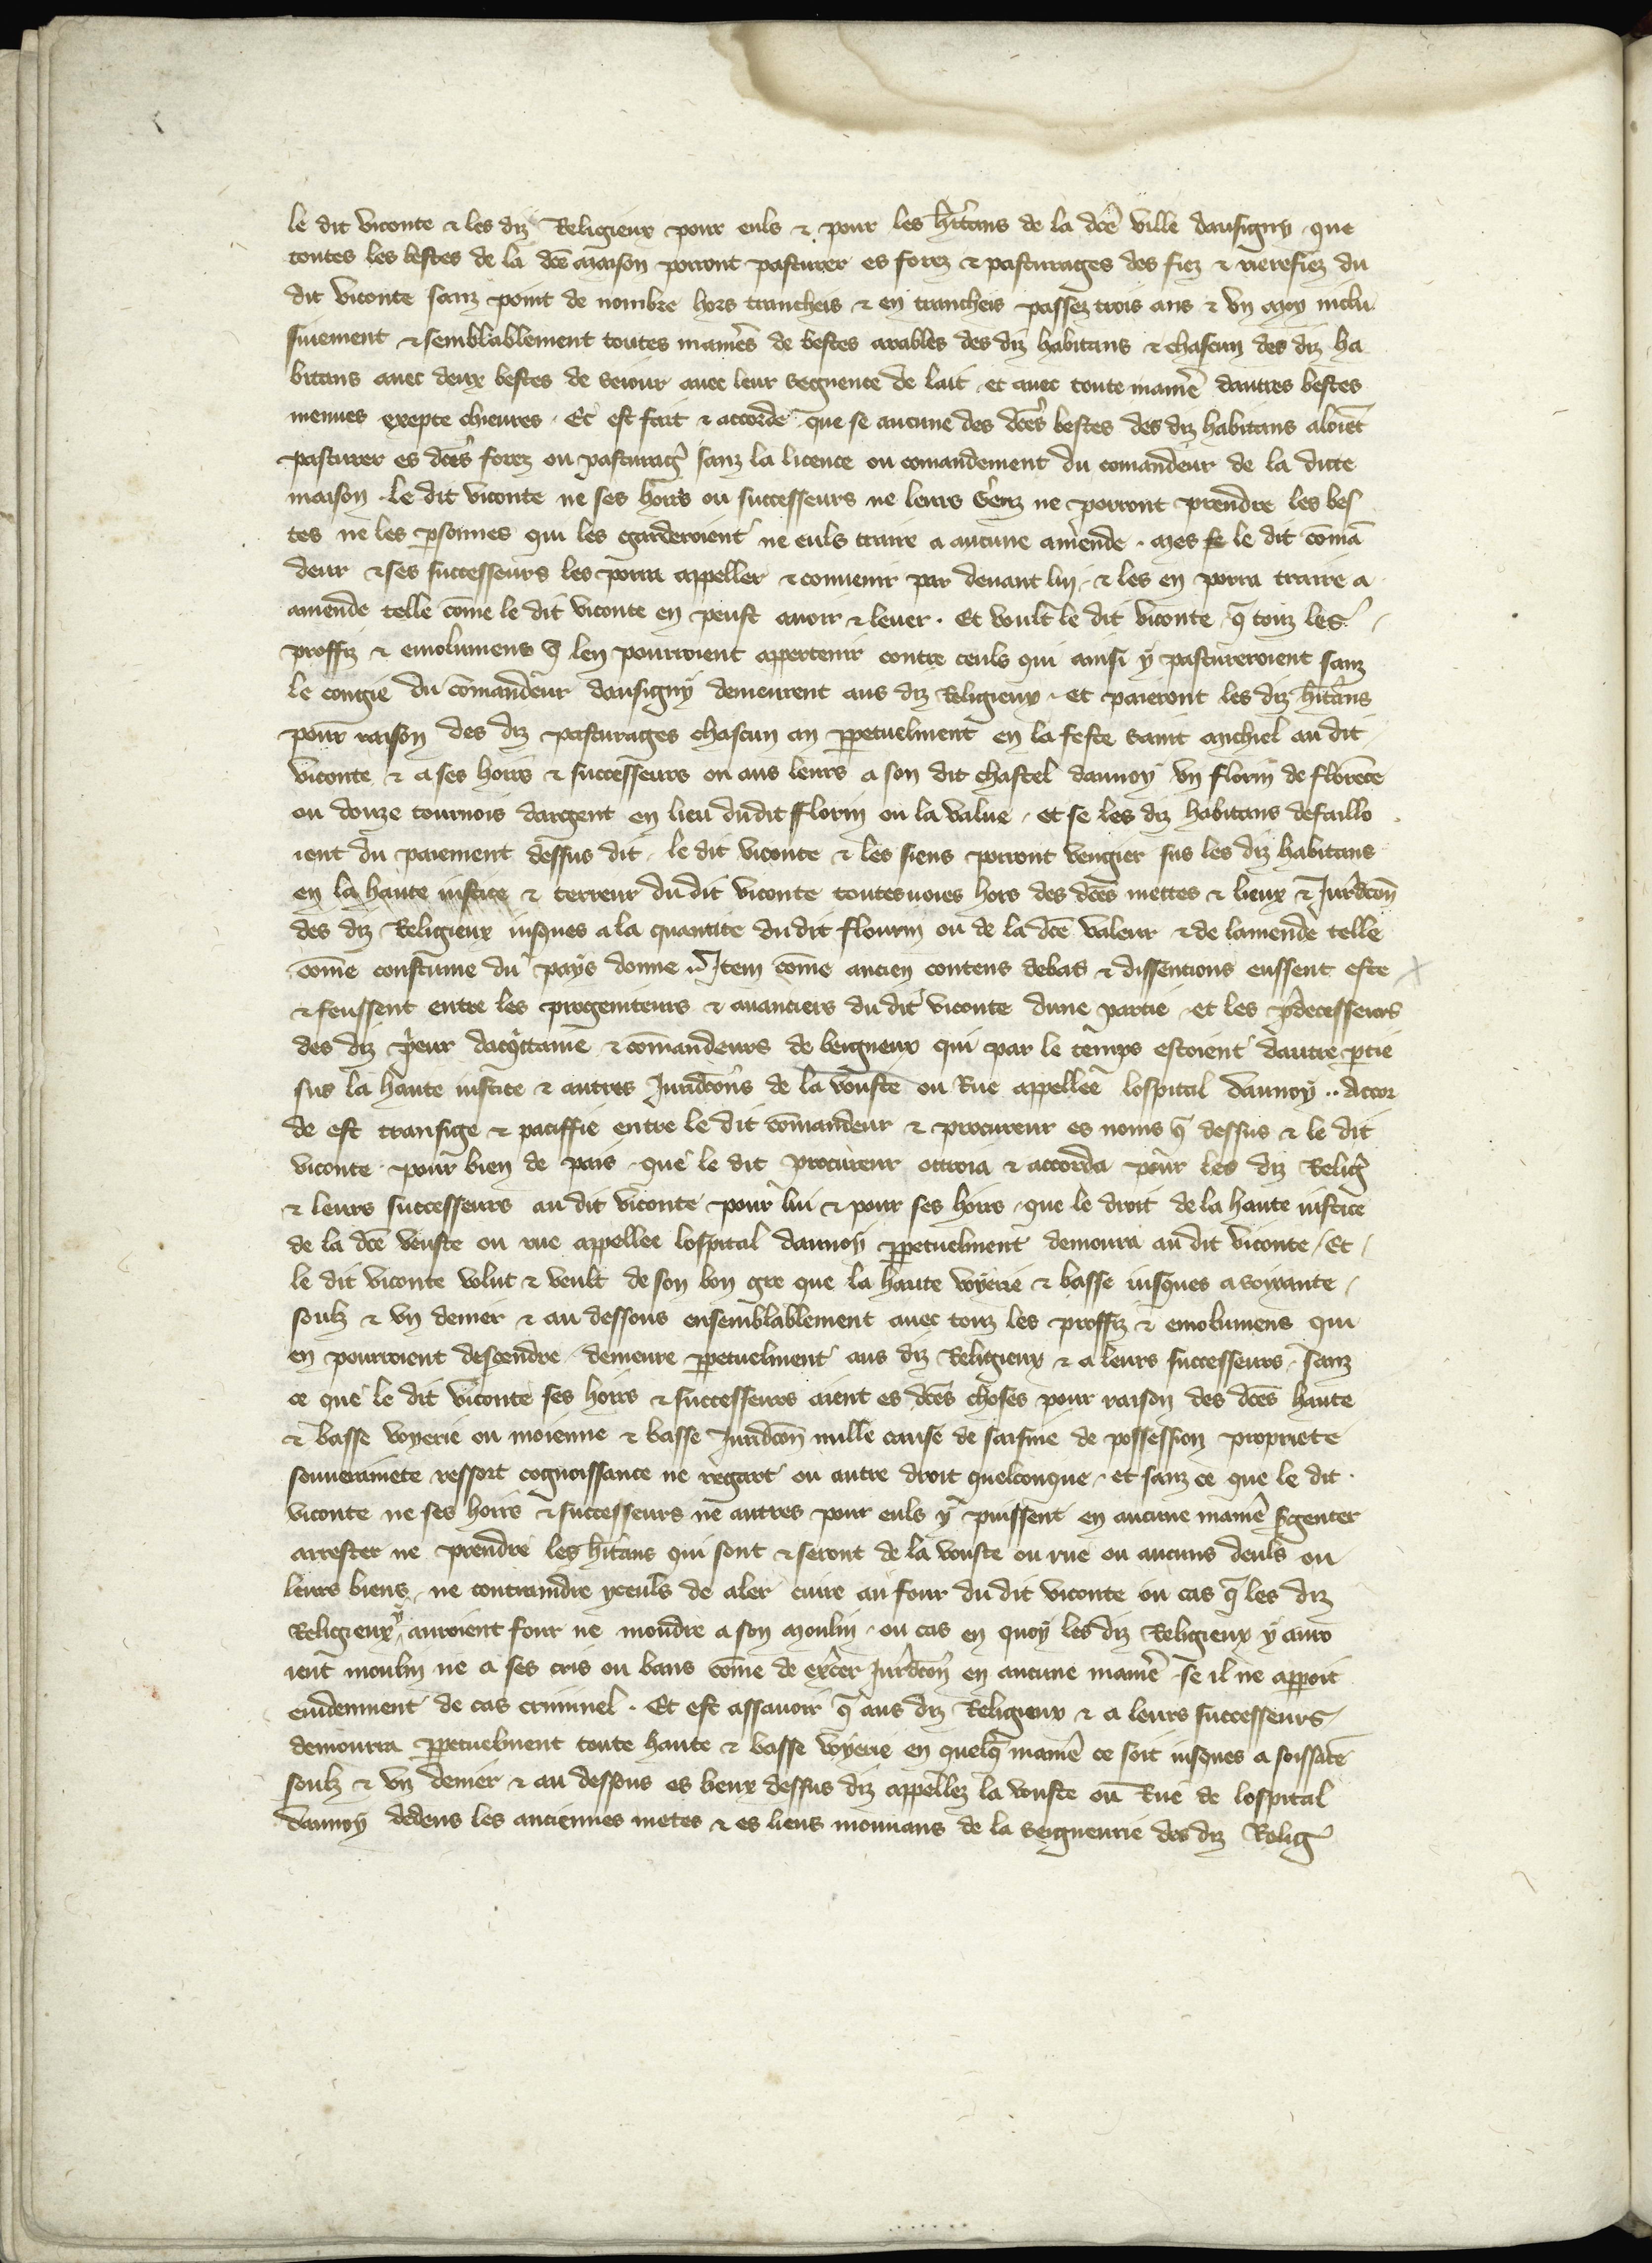 le dit viconte & les diz Religieux pour euls & pour les hitans de la dce ville dausigny que
toutes les bestes de la dce maison porront pasturer es forez & pasturages des fiez & rierefiez du
dit viconte sanz point de nombre hors trancheis & en trancheis passez trois ans & vn moy inclu
siuement & semblablement toutes manies de bestes arables des diz habitans & chascun des diz ha
bitans auec deux bestes de seiour auec leur seguence de lait et auec toute manie dautres bestes
menues exepte chieures . Et est fait & accorde que se aucune des dces bestes des diz habitans aloiet
pasturer es dces forez ou pasturag sanz la licence ou comandement du comandeur de la dicte
maison . le dit viconte ne ses hoirs ou successeurs ne leurs Genz ne porront prendre les bes
tes ne les psonnes qui les garderoient ne euls traire a aucune amende . mes se le dit coma
deur & ses successeurs les porra appeller & conuenir par deuant lui & les en porra traire a
amende telle come le dit viconte en peust auoir & leuer . Et voult le dit viconte q touz les
proffiz & emolumens q len pourroient appertenir contre ceuls qui ainsi y pastureroient sanz
le congie du comandeur dausigny demeurent aus diz Religieux . et paieront les diz hitans
pour raison des diz pasturages chascun an ppetuelment en la feste saint michiel au dit
viconte & a ses hoirs & successeurs ou aus leurs a son dit chastel daunoy vn florin de florece
ou douze tournois dargent en lieu dudit fflorin ou la value . et se les diz habitans defaillo
ient du paiement dessus dit le dit viconte & les siens porront vengier sus les diz habitans
en la haute iustice & terreur du dit viconte toutesuoies hors des dces mettes & lieux & Jurdcon
des diz Religieux iusques a la quantite du dit flourin ou de la dce valeur & de lamende telle
come coustume du pays donne Item come ancien contens debas & dissentions eussent este
& feussent entre les progeniteurs & auanciers du dit viconte dune partie et les pdecesseurs
des diz peur dacqittaine & comandeurs de beigneux qui par le temps estoient dautre ptie
sus la haute iustice & autres Juridcons de la vouste ou Rue appellee lospital daunoy .. Accor
de est transige & paciffie entre le dit comandeur & procureur es noms q dessus & le dit
viconte pour bien de pais que le dit procureur ottroia & accorda pour les diz Relig
& leurs successeurs au dit viconte pour lui & pour ses hoirs que le droit de la haute iustice
de la dce vouste ou rue appellee lospital daunoy ppetuelment demoura au dit viconte / Et
le dit viconte volut & veult de son bon gre que la haute voyerie & basse iusques a soixante
soulz & vn denier & au dessous ensemblablement auec touz les proffiz & emolumens qui
en pourroient descendre demeure ppetuelment aus diz Religieux & a leurs successeurs sanz
ce que le dit viconte ses hoirs & successeurs aient es dces choses pour raison des dces haute
& basse voyerie ou moienne & basse Juridcon nulle cause de saisine de possession propriete
souuerainete ressort cognoissance ne regart ou autre droit quelconque . et sanz ce que le dit
viconte ne ses hoirs & successeurs ne autres pour euls y puissent en aucune manie sgenter
arrester ne prendre les hitans qui sont & seront de la vouste ou rue ou aucuns deuls ou
leurs biens ne contraindre yceuls de aler cuire au four du dit viconte ou cas q les diz
Religieux y auroient four ne moudre a son moulin ou cas en quoy les diz Religieux y auro
ient moulin ne a ses cris ou bans come de excer Jurdcon en aucune manie se il ne appoit
euidenment de cas criminel . Et est assauoir q aus diz Religieux & a leurs successeurs
demourra ppetuelment toute haute & basse voyerie en quelq manie ce soit iusques a soissate
soulz & vn denier & au dessous es lieux dessus diz appellez la vouste ou Rue de lospital
daunoy dedens les anciennes metes & es lieus mouuans de la seigneurie des diz Relig